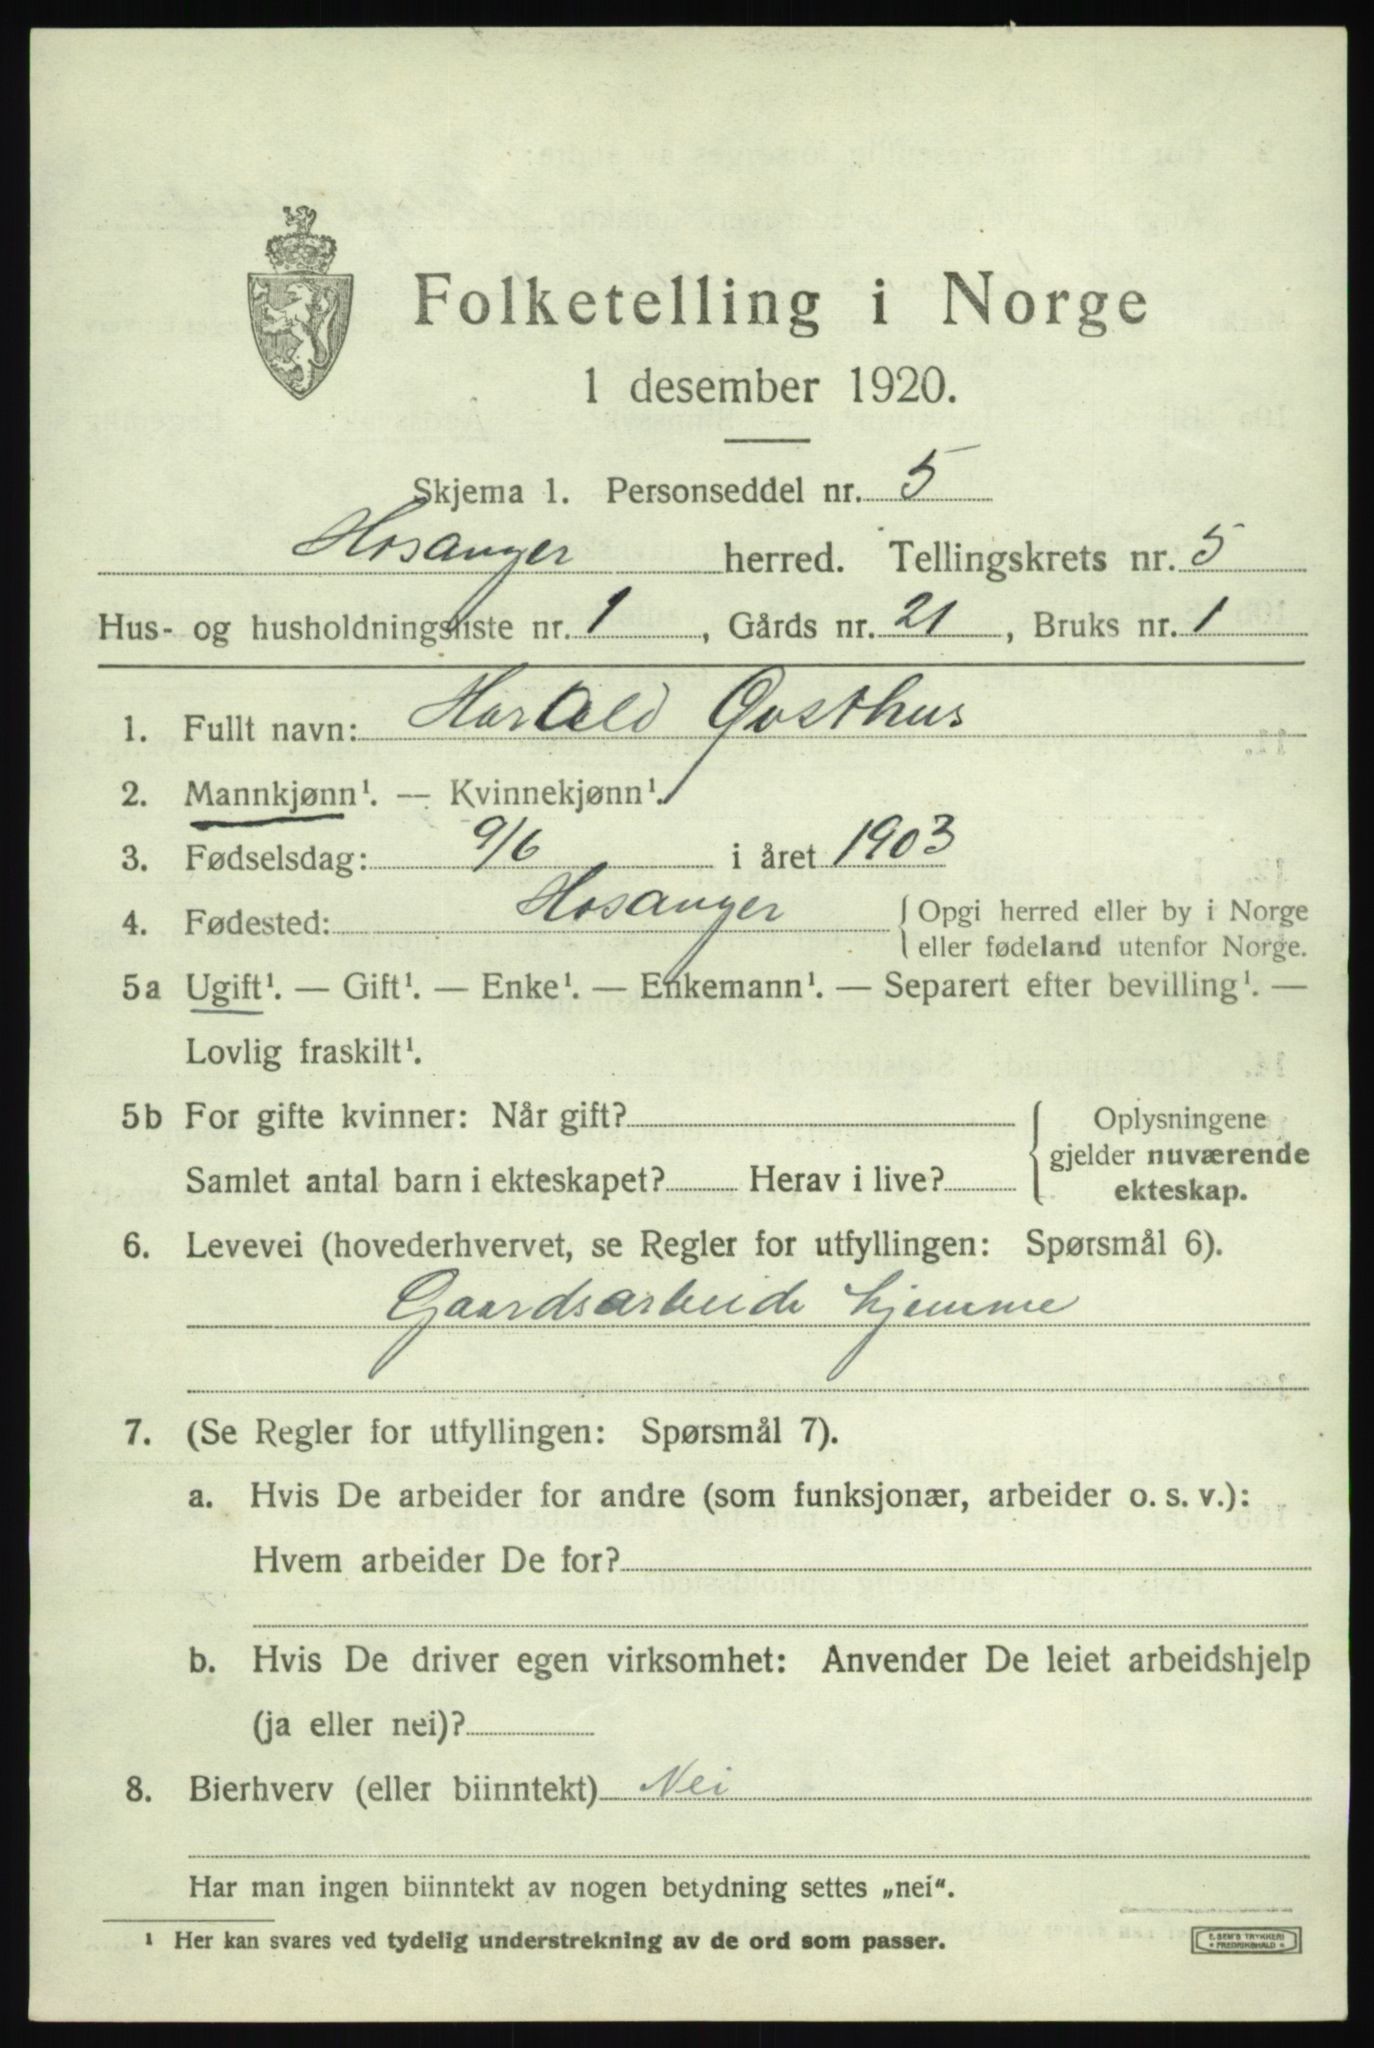 Folketelling i Norge
1 desember 1920.
Skjema 1. Personseddel nr. 5
Hosanger herred. Tellingskrets nr. 5
Hus- og husholdningsliste nr. 1, Gårds nr. 21, Bruks nr. 1
1. Fullt navn: Harald
2. Mannkjønn¹. — Kvinnekjønn¹.
3. Fødselsdag: 9/6 i året 1903
4. Fødested: Hosanger { Opgi herred eller by i Norge
eller fødeland utenfor Norge.
5a Ugift¹. — Gift¹. — Enke¹. — Enkemann¹. — Separert efter bevilling¹. —
Lovlig fraskilt¹.
5b For gifte kvinner: Når gift? { Oplysningene
gjelder nuværende
Samlet antal barn i ekteskapet? Herav i live? ekteskap.
6. Levevei (hovederhvervet, se Regler for utfyllingen: Spørsmål 6).
Gaardsarbeide hjemme
7. (Se Regler for utfyllingen: Spørsmål 7).
a. Hvis De arbeider for andre (som funksjonær, arbeider o. s. v.):
Hvem arbeider De for?
b. Hvis De driver egen virksomhet: Anvender De leiet arbeidshjelp
(ja eller nei)?
8. Bierhverv (eller biinntekt) Nei
Har man ingen biinntekt av nogen betydning settes „nei“.
¹ Her kan svares ved tydelig understrekning av de ord som passer.
E. SEM'S TRYKKERI
FREDRIKSHALD